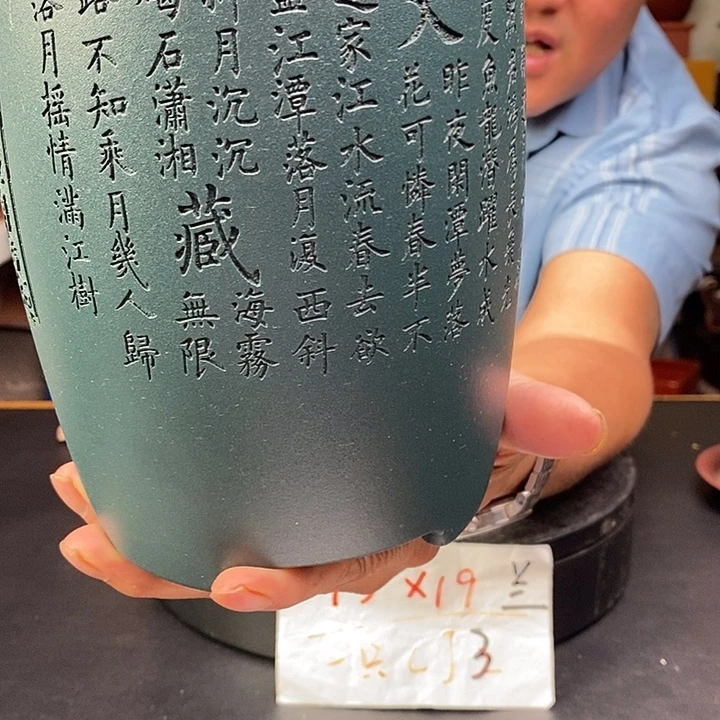 度魚龍潛躍水成
昨夜閑潭夢落
花可憐春半不
家江水流春去欲
盡江潭落月復西斜
斜月沉沉藏海霧
石瀟湘無限
路不知乘月幾人歸
落月搖情滿江樹
×19